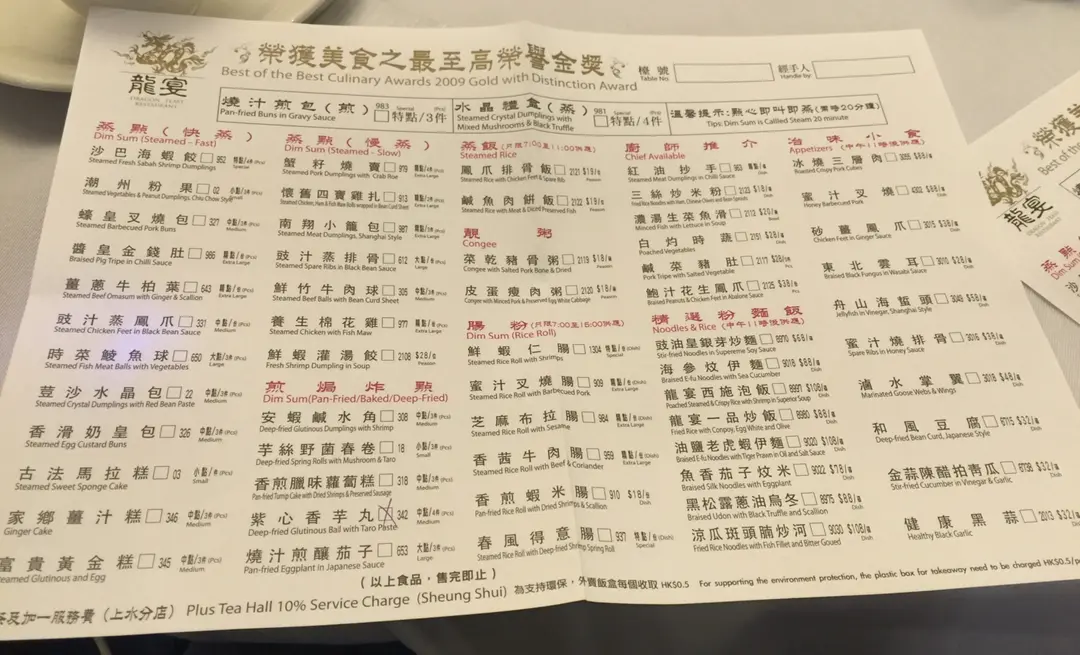 龍宴
DRAGON FEAST
RESTAURANT
榮獲美食之最至高榮譽金獎
Best of the Best Culinary Awards 2009 Gold with Distinction Award
檯號
Table No.
經手人
Handle by
燒汁煎包(煎) 983 Special (Pcs)
Pan-fried Buns in Gravy Sauce
特點/3件
水晶禮盒(蒸) 981 Special (Pcs)
Steamed Crystal Dumplings with
Mixed Mushrooms & Black Truffle
特點/4件
溫馨提示:點心即叫即蒸(需時20分鐘)
Tips: Dim Sum is Callled Steam 20 minute
蒸點(快蒸)
Dim Sum (Steamed - Fast)
沙巴海蝦餃 952
Steamed Fresh Sabah Shrimp Dumplings
潮州粉果 02 Small
Steamed Vegetables & Peanut Dumplings, Chiu Chow Style
蠔皇叉燒包 327 Medium
Steamed Barbecued Pork Buns
醬皇金錢肚 986 Extra Large
Braised Pig Tripe in Chilli Sauce
薑蔥牛柏葉 643 Extra Large
Steamed Beef Omasum with Ginger & Scallion
豉汁蒸鳳爪 331 Medium
Steamed Chicken Feet in Black Bean Sauce
時菜鯪魚球 650 大點/3件 (Pcs) Large
Steamed Fish Meat Balls with Vegetables
荳沙水晶包 22 中點/3件 (Pcs) Medium
Steamed Crystal Dumplings with Red Bean Paste
香滑奶皇包 326 中點/3件 (Pcs) Medium
Steamed Egg Custard Buns
古法馬拉糕 03 Small
Steamed Sweet Sponge Cake
家鄉薑汁糕 346 中點/3件 (Pcs) Medium
Ginger Cake
富貴黃金糕 345 中點/3件 (Pcs) Medium
Steamed Glutinous and Egg
蒸點(慢蒸)
Dim Sum (Steamed - Slow)
蟹籽燒賣 979 Extra Large
Steamed Pork Dumplings with Crab Roe
懷舊四寶雞扎 913 Extra Large
Steamed Chicken, Ham & Fish Maw Rolls wrapped in Bean Curd Sheet
南翔小籠包 987 Extra Large
Steamed Meat Dumplings, Shanghai Style
豉汁蒸排骨 612 Large
Steamed Spare Ribs in Black Bean Sauce
鮮竹牛肉球 305 Medium
Steamed Beef Balls with Bean Curd Sheet
養生棉花雞 977 Extra Large
Steamed Chicken with Fish Maw
鮮蝦灌湯餃 2108 $28/
Fresh Shrimp Dumpling in Soup
煎焗炸點
Dim Sum(Pan-Fried/Baked/Deep-Fried)
安蝦鹹水角 308 中點/3件 (Pcs) Medium
Deep-fried Glutinous Dumplings with Shrimp
芋絲野菌春卷 18 小點/3件 (Pcs) Small
Deep-fried Spring Rolls with Mushroom & Taro
香煎臘味蘿蔔糕 318 中點/3件 (Pcs) Medium
Pan-fried Turnip Cake with Dried Shrimps & Preserved Sausage
紫心香芋丸 342 中點/3件 (Pcs) Medium
Deep-fried Glutinous Ball with Taro Paste
燒汁煎釀茄子 653 大點/3件 (Pcs) Large
Pan-fried Eggplant in Japanese Sauce
蒸飯(只限7:00至11:00供應)
Steamed Rice
鳳爪排骨飯 2121 $18/
Steamed Rice with Chicken Feet & Spare Ribs
鹹魚肉餅飯 2122 $19/
Steamed Rice with Meat & Diced Preserved Fish
靚粥
Congee
菜乾豬骨粥 2119 $18/
Congee with Salted Pork Bone & Dried
皮蛋瘦肉粥 2120 $18/
Congee with Minced Pork & Preserved Egg White Cabbage
腸粉(只限7:00至16:00供應)
Dim Sum (Rice Roll)
鮮蝦仁腸 1304 Special
Steamed Rice Roll with Shrimps
蜜汁叉燒腸 909 Extra Large
Steamed Rice Roll with Barbecued Pork
芝麻布拉腸 984 Extra Large
Steamed Rice Roll with Sesame
香茜牛肉腸 959 Extra Large
Steamed Rice Roll with Beef & Coriander
香煎蝦米腸 910 $18/
Pan-fried Rice Roll with Dried Shrimps & Scallion
春風得意腸 937 Special
Steamed Rice Roll with Deep-fried Shrimp Spring Roll
廚師推介
Chief Available
紅油抄手 963
Steamed Meat Dumplings in Chilli Sauce
三絲炒米粉 2123 $18/
Fried Rice Noodles with Ham, Chinese Chives and Bean Sprouts
濃湯生菜魚滑 2112 $20/
Minced Fish with Lettuce in Soup
白灼時蔬 2151 $28/
Poached Vegetables
鹹菜豬肚 2177 $28/
Pork Tripe with Salted Vegetable
鮑汁花生鳳爪 2125 $38/
Braised Peanuts & Chicken Feet in Abalone Sauce
精選粉麵飯
Noodles & Rice (中午11時後供應)
豉油皇銀芽炒麵 8970 $68/
Stir-fried Noodles in Supereme Soy Sauce
海參炆伊麵 9018 $88/
Braised E-fu Noodles with Sea Cucumber
龍宴西施泡飯 8997 $108/
Poached Steamed & Crispy Rice with Shrimp in Superior Soup
龍宴一品炒飯 8980 $88/
Fried Rice with Conpoy, Egg White and Olive
油鹽老虎蝦伊麵 9020 $108/
Braised E-fu Noodles with Tiger Prawn in Oil and Salt Sauce
魚香茄子炆米 9022 $78/
Braised Silk Noodles with Eggplant
黑松露蔥油烏冬 8975 $88/
Braised Udon with Black Truffle and Scallion
涼瓜斑頭腩炒河 9030 $108/
Fried Rice Noodles with Fish Fillet and Bitter Goued
冶味小食
Appetizers (中午11時後供應)
冰燒三層肉 3055 $68/
Roasted Crispy Pork Cubes
蜜汁叉燒 4302 $68/
Honey Barbecued Pork
砂薑鳳爪 3015 $38/
Chicken Feet in Ginger Sauce
東北雲耳 3010 $28/
Braised Black Fungus in Wasabi Sauce
舟山海蜇頭 3049 $58/
Jellyfish in Vinegar, Shanghai Style
蜜汁燒排骨 3016 $38/
Spare Ribs in Honey Sauce
滷水掌翼 3018 $48/
Marinated Goose Webs & Wings
和風豆腐 6715 $32/
Deep-fried Bean Curd, Japanese Style
金蒜陳醋拍青瓜 6798 $32/
Stir-fried Cucumber in Vinegar & Garlic
健康黑蒜 2013 $32/
Healthy Black Garlic
(以上食品,售完即止)
茶及加一服務費(上水分店) Plus Tea Hall 10% Service Charge (Sheung Shui) 為支持環保,外賣飯盒每個收取 HK$0.5 For supporting the environment protection, the plastic box for takeaway need to be charged HK$0.5/p